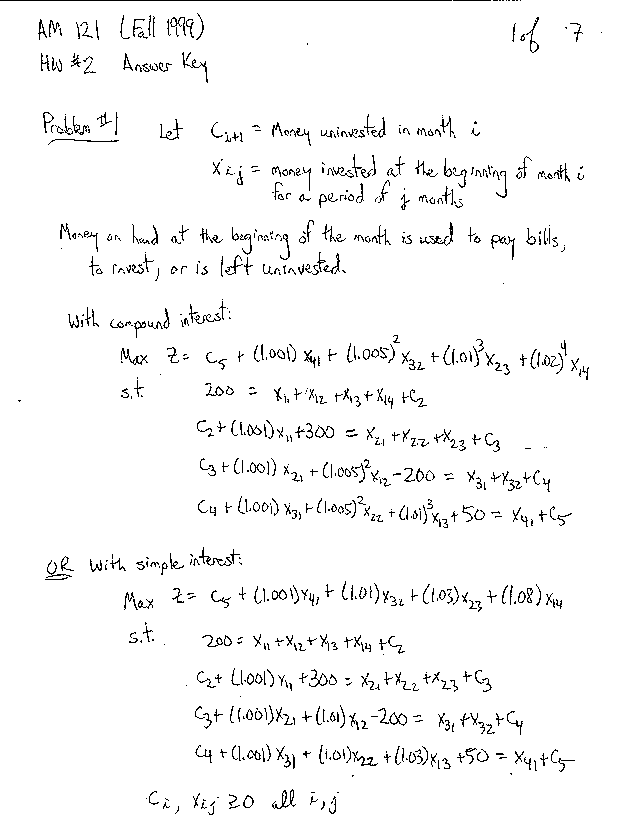 AM 121 (Fall 1999)
1 of 7
HW #2 Answer Key
Problem #1 Let C_{i+1} = Money uninvested in month i
X_{ij} = money invested at the beginning of month i
for a period of j months
Money on hand at the beginning of the month is used to pay bills,
to invest, or is left uninvested.
With compound interest:
Max Z = C_5 + (1.001) X_{41} + (1.005)^2 X_{32} + (1.01)^3 X_{23} + (1.02)^4 X_{14}
s.t. 200 = X_{11} + X_{12} + X_{13} + X_{14} + C_2
C_2 + (1.001) X_{11} + 300 = X_{21} + X_{22} + X_{23} + C_3
C_3 + (1.001) X_{21} + (1.005)^2 X_{12} - 200 = X_{31} + X_{32} + C_4
C_4 + (1.001) X_{31} + (1.005)^2 X_{22} + (1.01)^3 X_{13} + 50 = X_{41} + C_5
OR With simple interest:
Max Z = C_5 + (1.001) X_{41} + (1.01) X_{32} + (1.03) X_{23} + (1.08) X_{14}
s.t. 200 = X_{11} + X_{12} + X_{13} + X_{14} + C_2
C_2 + (1.001) X_{11} + 300 = X_{21} + X_{22} + X_{23} + C_3
C_3 + (1.001) X_{21} + (1.01) X_{12} - 200 = X_{31} + X_{32} + C_4
C_4 + (1.001) X_{31} + (1.01) X_{22} + (1.03) X_{13} + 50 = X_{41} + C_5
C_i, X_{ij} ≥ 0 all i, j